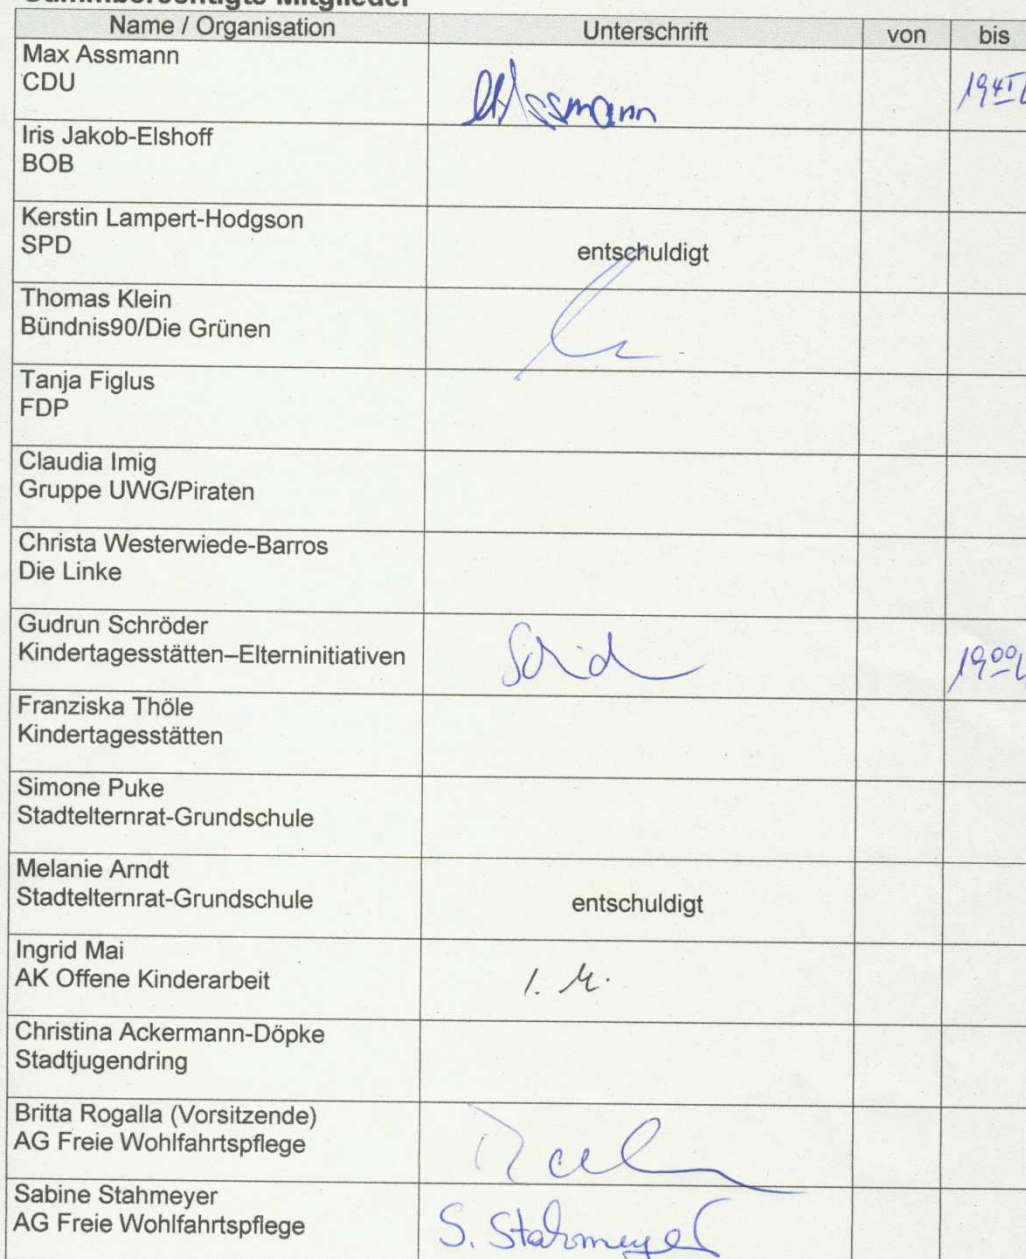 Stimmberechtigte Mitglieder
Name / Organisation Unterschrift von bis
Max Assmann
CDU
Assmann
Iris Jakob-Elshoff
BOB
Kerstin Lampert-Hodgson
SPD
entschuldigt
Thomas Klein
Bündnis90/Die Grünen
Tanja Figlus
FDP
Claudia Imig
Gruppe UWG/Piraten
Christa Westerwiede-Barros
Die Linke
Gudrun Schröder
Kindertagesstätten–Elterninitiativen
19⁰⁰
Franziska Thöle
Kindertagesstätten
Simone Puke
Stadtelternrat-Grundschule
Melanie Arndt
Stadtelternrat-Grundschule
entschuldigt
Ingrid Mai
AK Offene Kinderarbeit
I. M.
Christina Ackermann-Döpke
Stadtjugendring
Britta Rogalla (Vorsitzende)
AG Freie Wohlfahrtspflege
Sabine Stahmeyer
AG Freie Wohlfahrtspflege
S. Stahmeyer